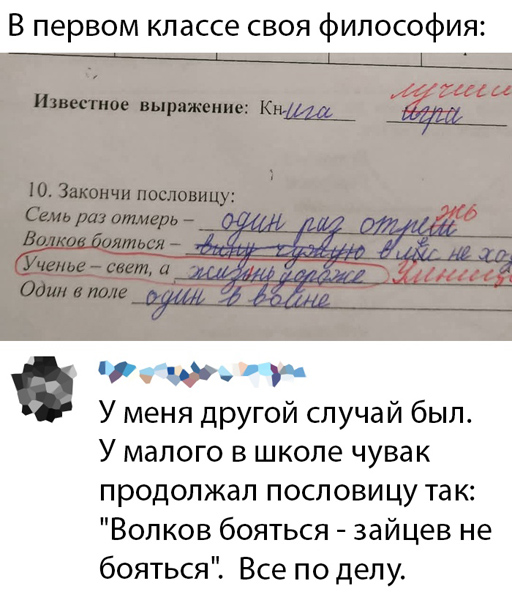 В первом классе своя философия:
Известное выражение: Книга лучший игра
10. Закончи пословицу:
Семь раз отмерь – один раз отрежь
Волков бояться – в лес не хо
Ученье – свет, а жизнь дороже
Один в поле один в войне
У меня другой случай был.
У малого в школе чувак
продолжал пословицу так:
"Волков бояться - зайцев не
бояться". Все по делу.